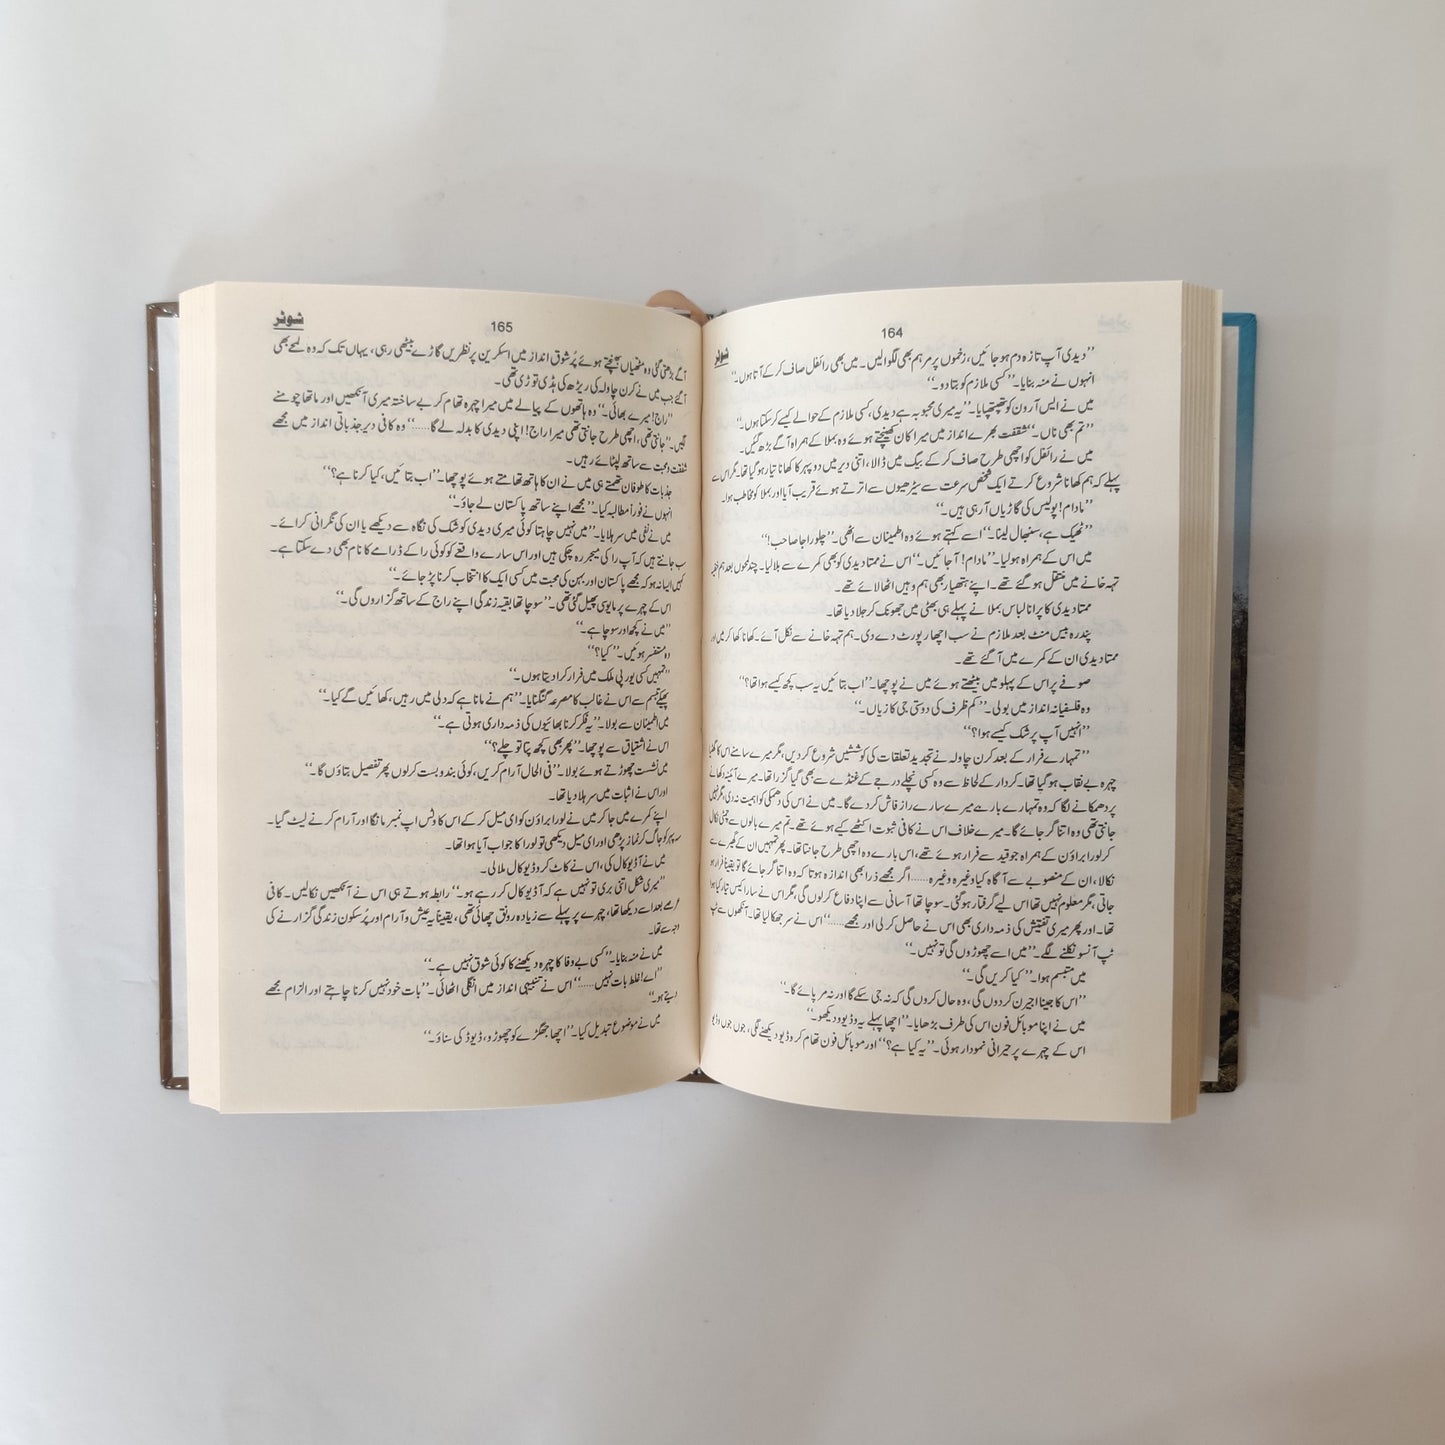 164
شوٹر
”دیدی آپ تازہ دم ہو جائیں، زخموں پر مرہم بھی لگوالیں۔ میں بھی رائفل صاف کر کے آتا ہوں۔“
انہوں نے منہ بنایا۔ ”کسی ملازم کو بتا دو۔“
میں نے ایس آر ون کو تھپتھپایا۔ ”یہ میری محبوبہ ہے دیدی، کسی ملازم کے حوالے کیسے کر سکتا ہوں۔“
”تم بھی ناں۔“ شفقت بھرے انداز میں میرا کان کھینچتے ہوئے وہ بملا کے ہمراہ آگے بڑھ گئیں۔
میں نے رائفل کو اچھی طرح صاف کر کے بیگ میں ڈالا، اتنی دیر میں دوپہر کا کھانا تیار ہو گیا تھا۔ مگر اس سے
پہلے کہ ہم کھانا شروع کرتے ایک شخص سرعت سے سیڑھیوں سے اترتے ہوئے قریب آیا اور بملا کو مخاطب ہوا۔
”مادام! پولیس کی گاڑیاں آرہی ہیں۔“
”ٹھیک ہے، سنبھال لینا۔“ اسے کہتے ہوئے وہ اطمینان سے اٹھی۔ ”چلو راجا صاحب!“
میں اس کے ہمراہ ہولیا۔ ”مادام! آجائیں۔“ اس نے ممتا دیدی کو بھی کمرے سے بلا لیا۔ چند لمحوں بعد ہم خفیہ
تہہ خانے میں منتقل ہو گئے تھے۔ اپنے ہتھیار بھی ہم وہیں اٹھا لائے تھے۔
ممتا دیدی کا پرانا لباس بملا نے پہلے ہی بھٹی میں جھونک کر جلا دیا تھا۔
پندرہ بیس منٹ بعد ملازم نے سب اچھا رپورٹ دے دی۔ ہم تہہ خانے سے نکل آئے۔ کھانا کھا کر میں اور
ممتا دیدی ان کے کمرے میں آگئے تھے۔
صوفے پر اس کے پہلو میں بیٹھتے ہوئے میں نے پوچھا۔ ”اب بتائیں یہ سب کچھ کیسے ہوا تھا؟“
وہ فلسفیانہ انداز میں بولی۔ ”کم ظرف کی دوستی جی کا زیاں۔“
”انہیں آپ پر شک کیسے ہوا؟“
”تمہارے فرار کے بعد کرن چاولہ نے تجدید تعلقات کی کوششیں شروع کر دیں، مگر میرے سامنے اس کا گھٹیا
چہرہ بے نقاب ہو گیا تھا۔ کردار کے لحاظ سے وہ کسی نچلے درجے کے غنڈے سے بھی گیا گزرا تھا۔ میرے آئینہ دکھانے
پر دھمکانے لگا کہ وہ تمہارے بارے میرے سارے راز فاش کر دے گا۔ میں نے اس کی دھمکی کو اہمیت نہ دی، مگر نہیں
جانتی تھی وہ اتنا گر جائے گا۔ میرے خلاف اس نے کافی ثبوت اکٹھے کیے ہوئے تھے۔ تم میرے بالوں سے چمٹی نکال
کر لورا براؤن کے ہمراہ جو قید سے فرار ہوئے تھے، اس بارے وہ اچھی طرح جانتا تھا۔ پھر تمہیں ان کے گھیرے سے
نکالا، ان کے منصوبے سے آگاہ کیا وغیرہ وغیرہ...... اگر مجھے ذرا بھی اندازہ ہوتا کہ وہ اتنا گر جائے گا تو یقیناً فرار ہو
جاتی، مگر معلوم نہیں تھا اس لیے گرفتار ہو گئی۔ سوچا تھا آسانی سے اپنا دفاع کر لوں گی، مگر اس نے سارا کیس تیار کیا ہوا
تھا۔ اور پھر میری تفتیش کی ذمہ داری بھی اس نے حاصل کر لی اور مجھے......“ اس نے سر جھکا لیا تھا۔ آنکھوں سے ٹپ
ٹپ آنسو نکلنے لگے۔ ”میں اسے چھوڑوں گی تو نہیں۔“
میں متبسم ہوا۔ ”کیا کریں گی۔“
”اس کا جینا اجیرن کر دوں گی، وہ حال کروں گی کہ نہ جی سکے گا اور نہ مر پائے گا۔“
میں نے اپنا موبائل فون اس کی طرف بڑھایا۔ ”اچھا پہلے یہ وڈیو دیکھو۔“
اس کے چہرے پر حیرانی نمودار ہوئی۔ ”یہ کیا ہے؟“ اور موبائل فون تھام کر وڈیو دیکھنے لگی، جوں جوں وڈیو
165
شوٹر
آگے بڑھتی گئی وہ مٹھیاں بھینچتے ہوئے پُر شوق انداز میں اسکرین پر نظریں گاڑے بیٹھی رہی، یہاں تک کہ وہ لمحے بھی
آگئے جب میں نے کرن چاولہ کی ریڑھ کی ہڈی توڑی تھی۔
”راج! میرے بھائی۔“ وہ ہاتھوں کے پیالے میں میرا چہرہ تھام کر بے ساختہ میری آنکھیں اور ماتھا چومنے
لگیں۔ ”جانتی تھی، اچھی طرح جانتی تھی میرا راج! اپنی دیدی کا بدلہ لے گا......“ وہ کافی دیر جذباتی انداز میں مجھے
شفقت و محبت سے ساتھ لپٹائے رہیں۔
جذبات کا طوفان تھمتے ہی میں نے ان کا ہاتھ تھامتے ہوئے پوچھا۔ ”اب بتائیں، کیا کرنا ہے؟“
انہوں نے فوراً مطالبہ کیا۔ ”مجھے اپنے ساتھ پاکستان لے جاؤ۔“
میں نے نفی میں سر ہلایا۔ ”میں نہیں چاہتا کوئی میری دیدی کو شک کی نگاہ سے دیکھے یا ان کی نگرانی کرائے۔
سب جانتے ہیں کہ آپ را کی میجر رہ چکی ہیں اور اس سارے واقعے کو کوئی را کے ڈرامے کا نام بھی دے سکتا ہے۔
کہیں ایسا نہ ہو کہ مجھے پاکستان اور بہن کی محبت میں کسی ایک کا انتخاب کرنا پڑ جائے۔“
اس کے چہرے پر مایوسی پھیل گئی تھی۔ ”سوچا تھا بقیہ زندگی اپنے راج کے ساتھ گزاروں گی۔“
”میں نے کچھ اور سوچا ہے۔“
وہ مستفسر ہوئیں۔ ”کیا؟“
”تمہیں کسی یورپی ملک میں فرار کرا دیتا ہوں۔“
پھیکے تبسم سے اس نے غالب کا مصرعہ گنگنایا۔ ”ہم نے مانا ہے کہ دلی میں رہیں، کھائیں گے کیا۔“
میں اطمینان سے بولا۔ ”یہ فکر کرنا بھائیوں کی ذمہ داری ہوتی ہے۔“
اس نے اشتیاق سے پوچھا۔ ”پھر بھی کچھ پتا تو چلے؟“
میں نشست چھوڑتے ہوئے بولا۔ ”فی الحال آرام کریں، کوئی بندوبست کر لوں پھر تفصیل بتاؤں گا۔“
اور اس نے اثبات میں سر ہلا دیا تھا۔
اپنے کمرے میں جا کر میں نے لورا براؤن کو ای میل کر کے اس کا وٹس اپ نمبر مانگا اور آرام کرنے لیٹ گیا۔
سہ پہر کو جاگ کر نماز پڑھی اور ای میل دیکھی تو لورا کا جواب آیا ہوا تھا۔
میں نے آڈیو کال کی، اس نے کاٹ کر وڈیو کال ملا لی۔
”میری شکل اتنی بری تو نہیں ہے کہ آڈیو کال کر رہے ہو۔“ رابطہ ہوتے ہی اس نے آنکھیں نکالیں۔ کافی
عرصے بعد اسے دیکھا تھا، چہرے پر پہلے سے زیادہ رونق چھائی تھی، یقیناً یہ عیش و آرام اور پُر سکون زندگی گزارنے کی
وجہ سے تھا۔
میں نے منہ بنایا۔ ”کسی بے وفا کا چہرہ دیکھنے کا کوئی شوق نہیں ہے۔“
”اے! غلط بات نہیں......“ اس نے تنبیہی انداز میں انگلی اٹھائی۔ ”بات خود نہیں کرنا چاہتے اور الزام مجھے
دیتے ہو۔“
میں نے موضوع تبدیل کیا۔ ”اچھا جھگڑے کو چھوڑو، ڈیوڈ کی سناؤ۔“